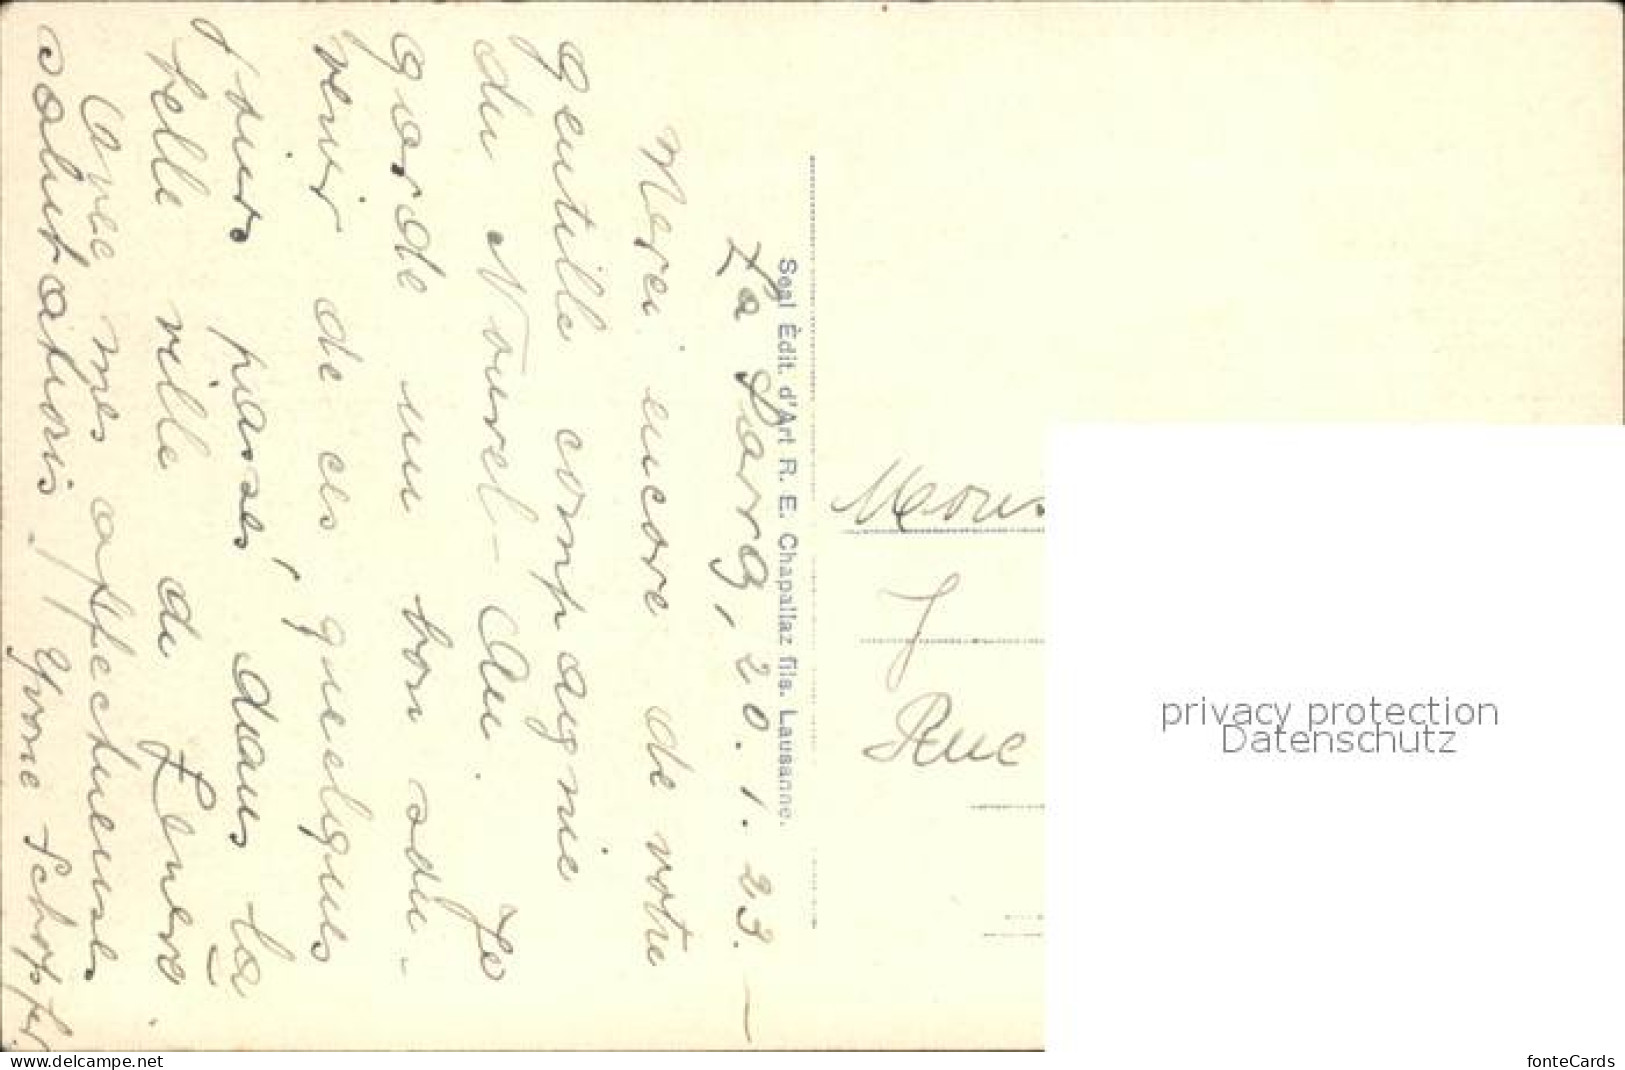 La Sarg, 20.1.23. —
Merci encore de votre
gentille compagnie
du Nouvel-An. Je
garde un bon sou-
venir de ces quelques
jours passés, dans la
belle ville de Genève.
Avec mes affectueuses
salutations.
Yvonne Schopfer.
Seal Èdit. d'Art R. E. Chapallaz fils. Lausanne.
Mons
J
Rue
privacy protection
Datenschutz
www.delcampe.net
fonteCards